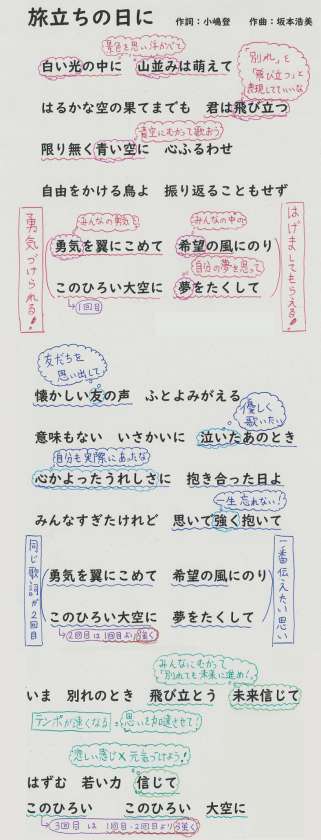 旅立ちの日に　作詞：小嶋登　作曲：坂本浩美
景色を思い浮かべて
白い光の中に　山並みは萌えて
「別れ」を
「飛び立つ」と
表現していていいな
はるかな空の果てまでも　君は飛び立つ
青空にむかって歌おう
限り無く青い空に　心ふるわせ
自由をかける鳥よ　振り返ることもせず
勇気づけられる！
みんなの勇気を
みんなの中の
はげましてもらえる！
勇気を翼にこめて　希望の風にのり
自分の夢を思って
このひろい大空に　夢をたくして
→1回目
友だちを
思い出して
懐かしい友の声　ふとよみがえる
優しく
歌いたい
意味もない　いさかいに　泣いたあのとき
自分も実際にあったな
心かよったうれしさに　抱き合った日よ
一生忘れない！
みんなすぎたけれど　思いで強く抱いて
同じ歌詞が2回目
一番伝えたい思い
勇気を翼にこめて　希望の風にのり
このひろい大空に　夢をたくして
→2回目は1回目より強く
みんなにむかって
「別れても未来に進め！」
いま　別れのとき　飛び立とう　未来信じて
テンポが速くなる＝思いを加速させて！
悲しい感じ×元気づけよう！
はずむ　若い力　信じて
このひろい　このひろい　大空に
→3回目は1回目・2回目より強く